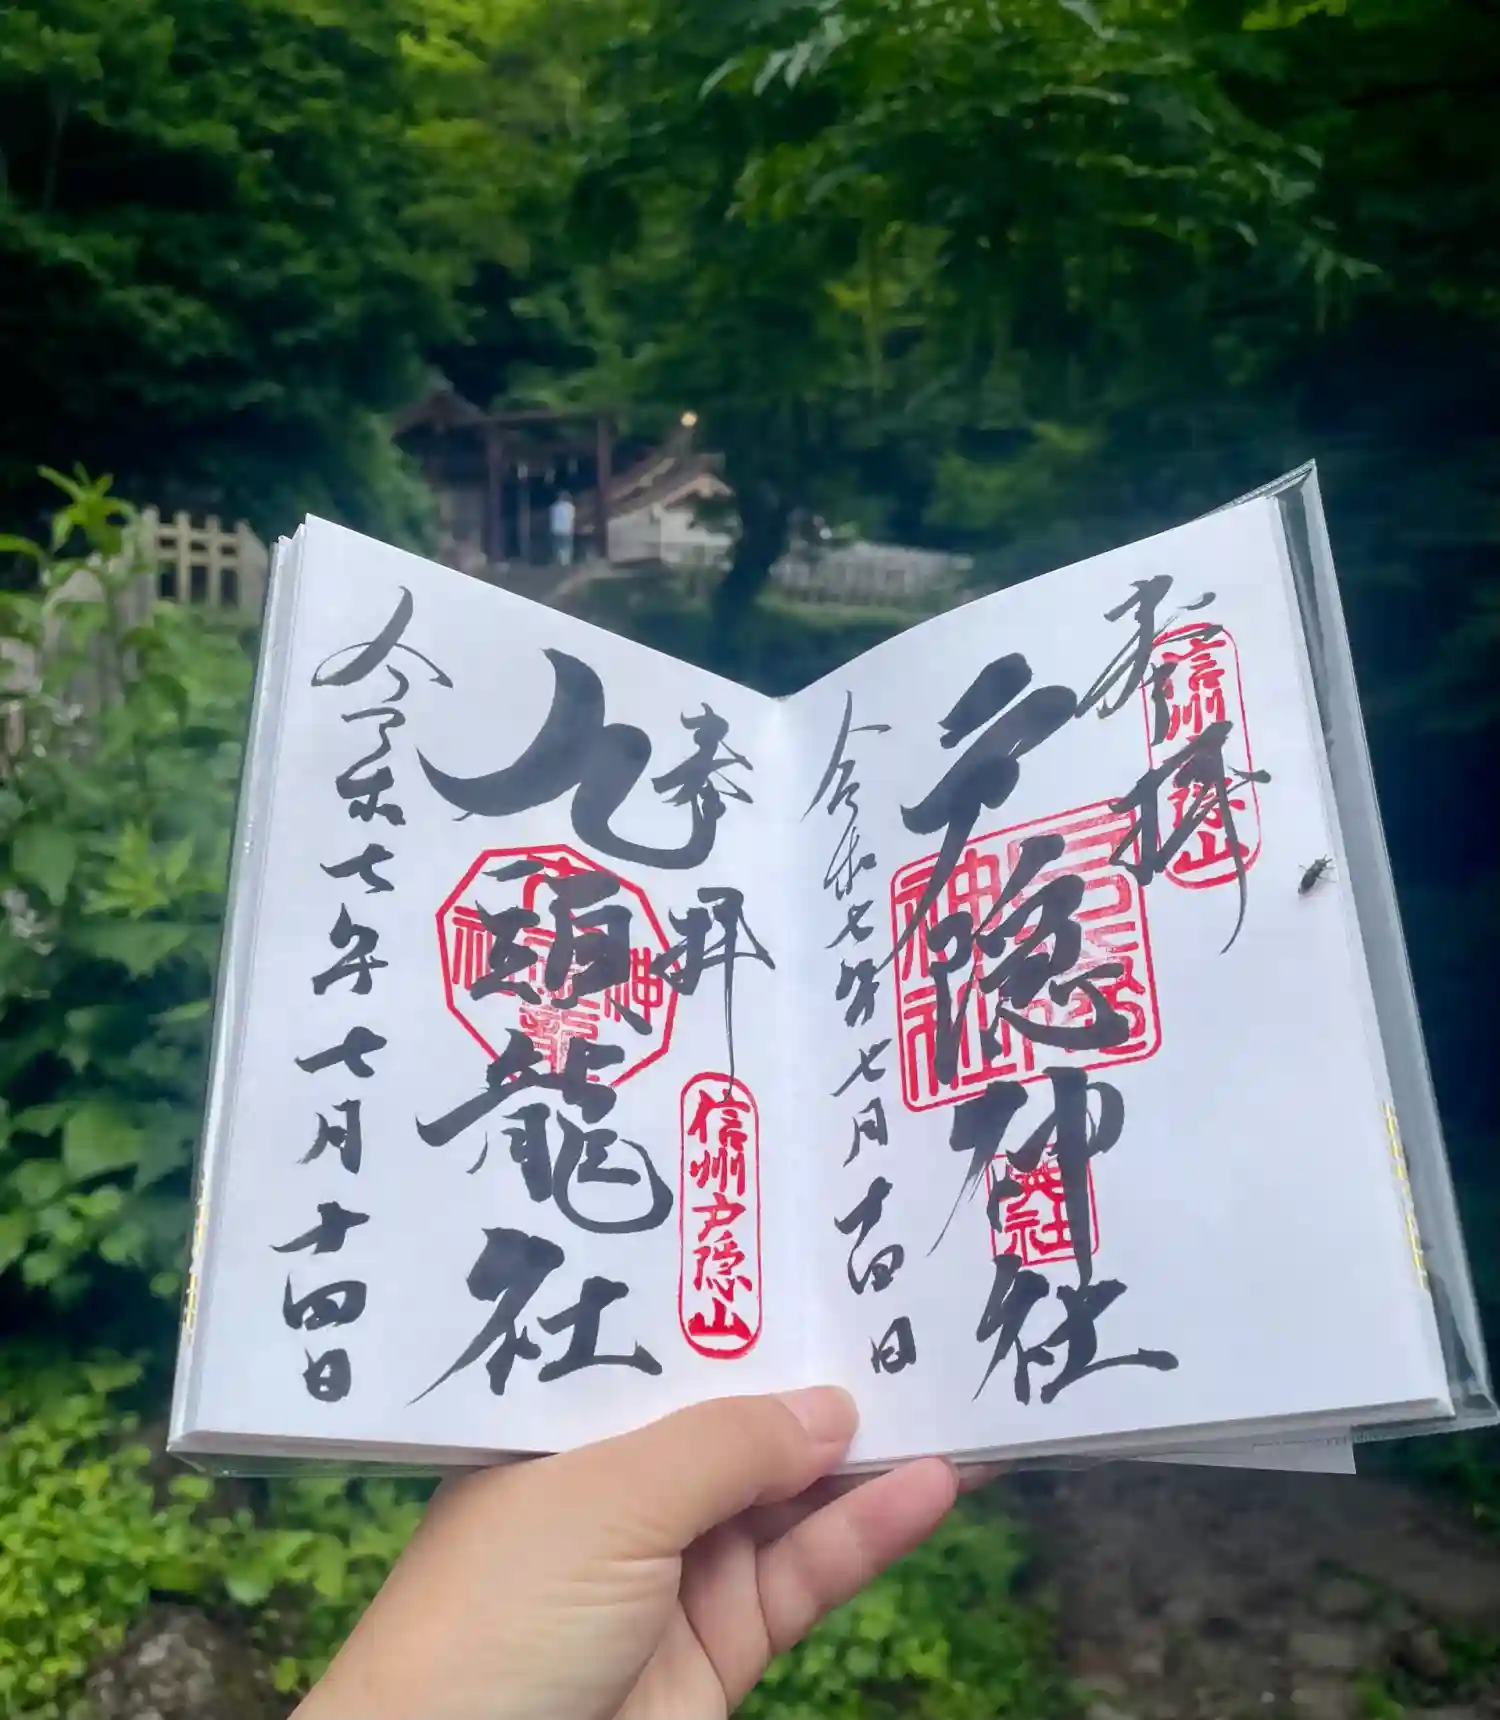 奉拝
信州戸隠山
戸隠神社
戸隠神社
奥社
令和七年七月十四日
奉拝
信州戸隠山
九頭龍社
令和七年七月十四日